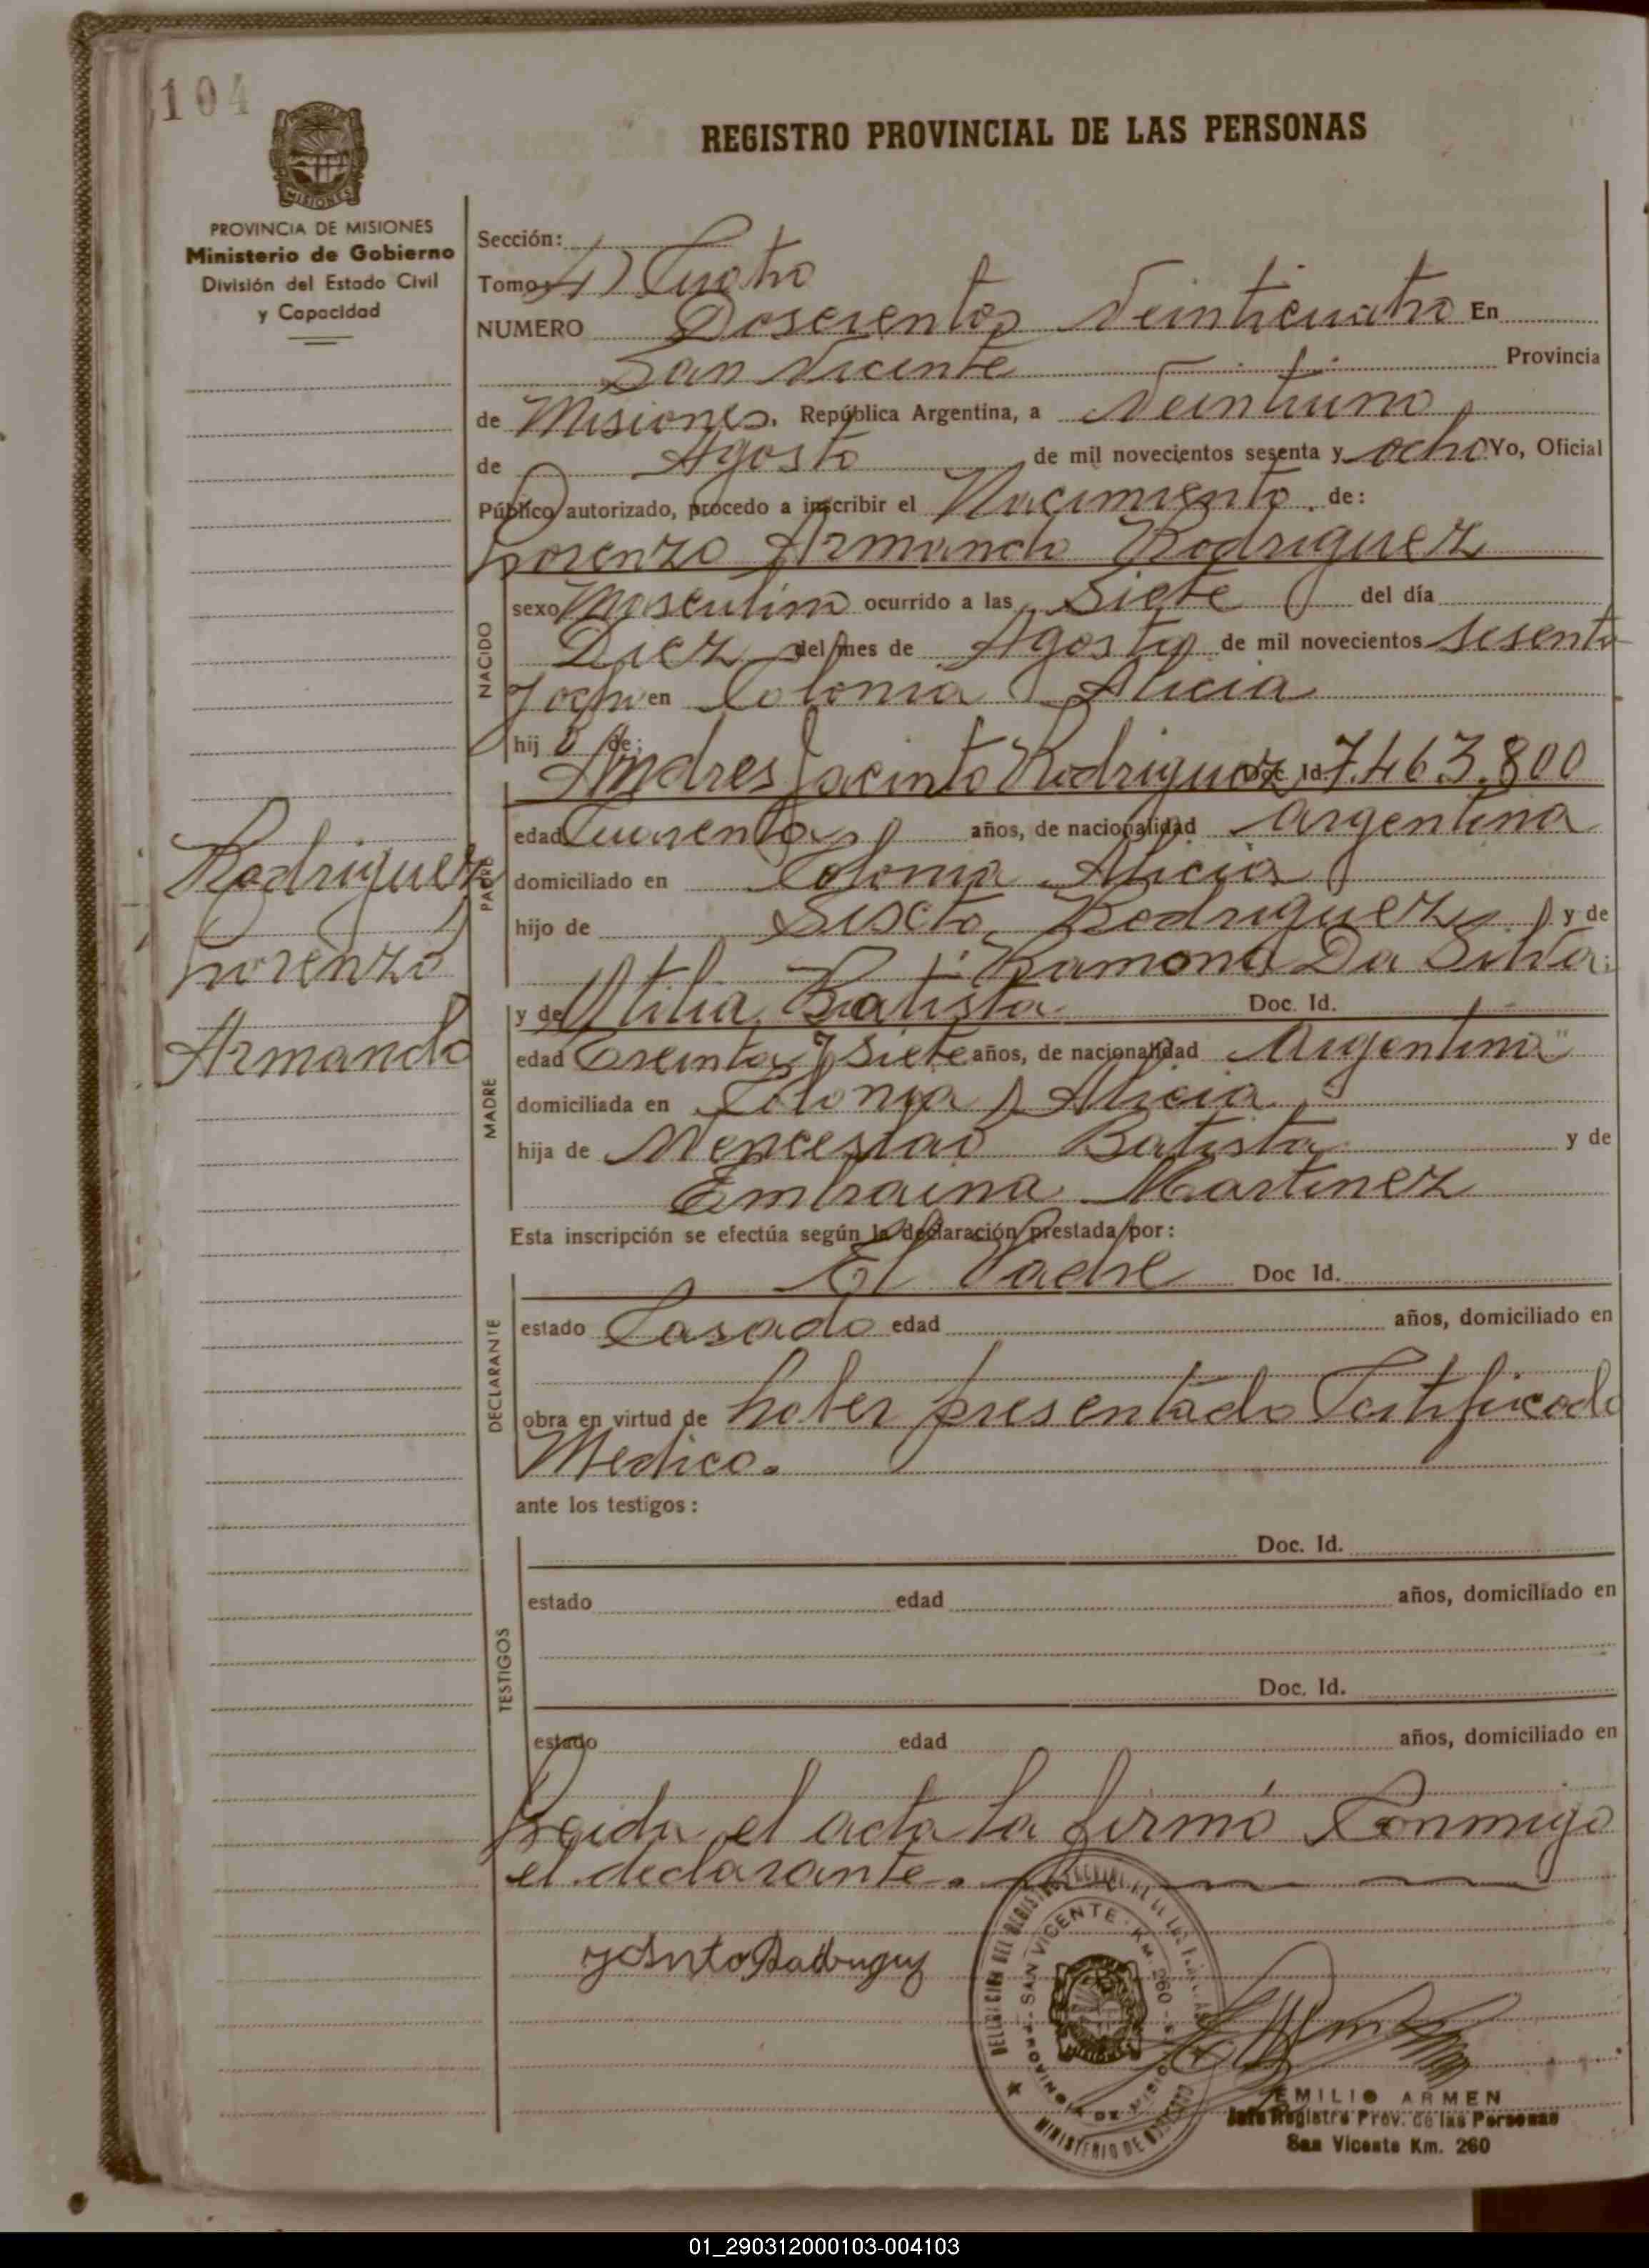 104
REGISTRO PROVINCIAL DE LAS PERSONAS
MISIONES
PROVINCIA DE MISIONES
Ministerio de Gobierno
División del Estado Civil
y Capacidad
Sección:
Tomo 4) Cuatro
NUMERO Doscientos Veinticuatro En
San Vicente Provincia
de Misiones. República Argentina, a Veintiuno
de Agosto de mil novecientos sesenta y ocho Yo, Oficial
Público autorizado, procedo a inscribir el Nacimiento de:
Lorenzo Armando Rodriguez
NACIDO
sexo Masculino ocurrido a las Siete del día
Diez del mes de Agosto de mil novecientos sesenta
y ocho en Colonia Alicia
hij o de:
Andres Jacinto Rodriguez Doc. Id. 7.463.800
PADRE
edad Cuarenta años, de nacionalidad Argentina
domiciliado en Colonia Alicia
hijo de Siscto Rodriguez y de
Ramona Da Silva
Rodriguez
Lorenzo
Armando
MADRE
y de Otilia Batista Doc. Id.
edad Treinta y Siete años, de nacionalidad Argentina
domiciliada en Colonia Alicia
hija de Wenceslao Batista y de
Martinez
Esta inscripción se efectúa según la declaración prestada por:
DECLARANTE
El Padre Doc Id.
estado Casado edad años, domiciliado en
obra en virtud de haber presentado Certificado
Medico.
ante los testigos:
TESTIGOS
Doc. Id.
estado edad años, domiciliado en
Doc. Id.
estado edad años, domiciliado en
Leida el acta la firmó Conmigo
el declarante.
SAN VICENTE - KM. 260
PROVINCIA DE MISIONES
MINISTERIO DE GOBIERNO
EMILIO ARMEN
Jefe Registro Prov. de las Personas
San Vicente Km. 260
01_290312000103-004103